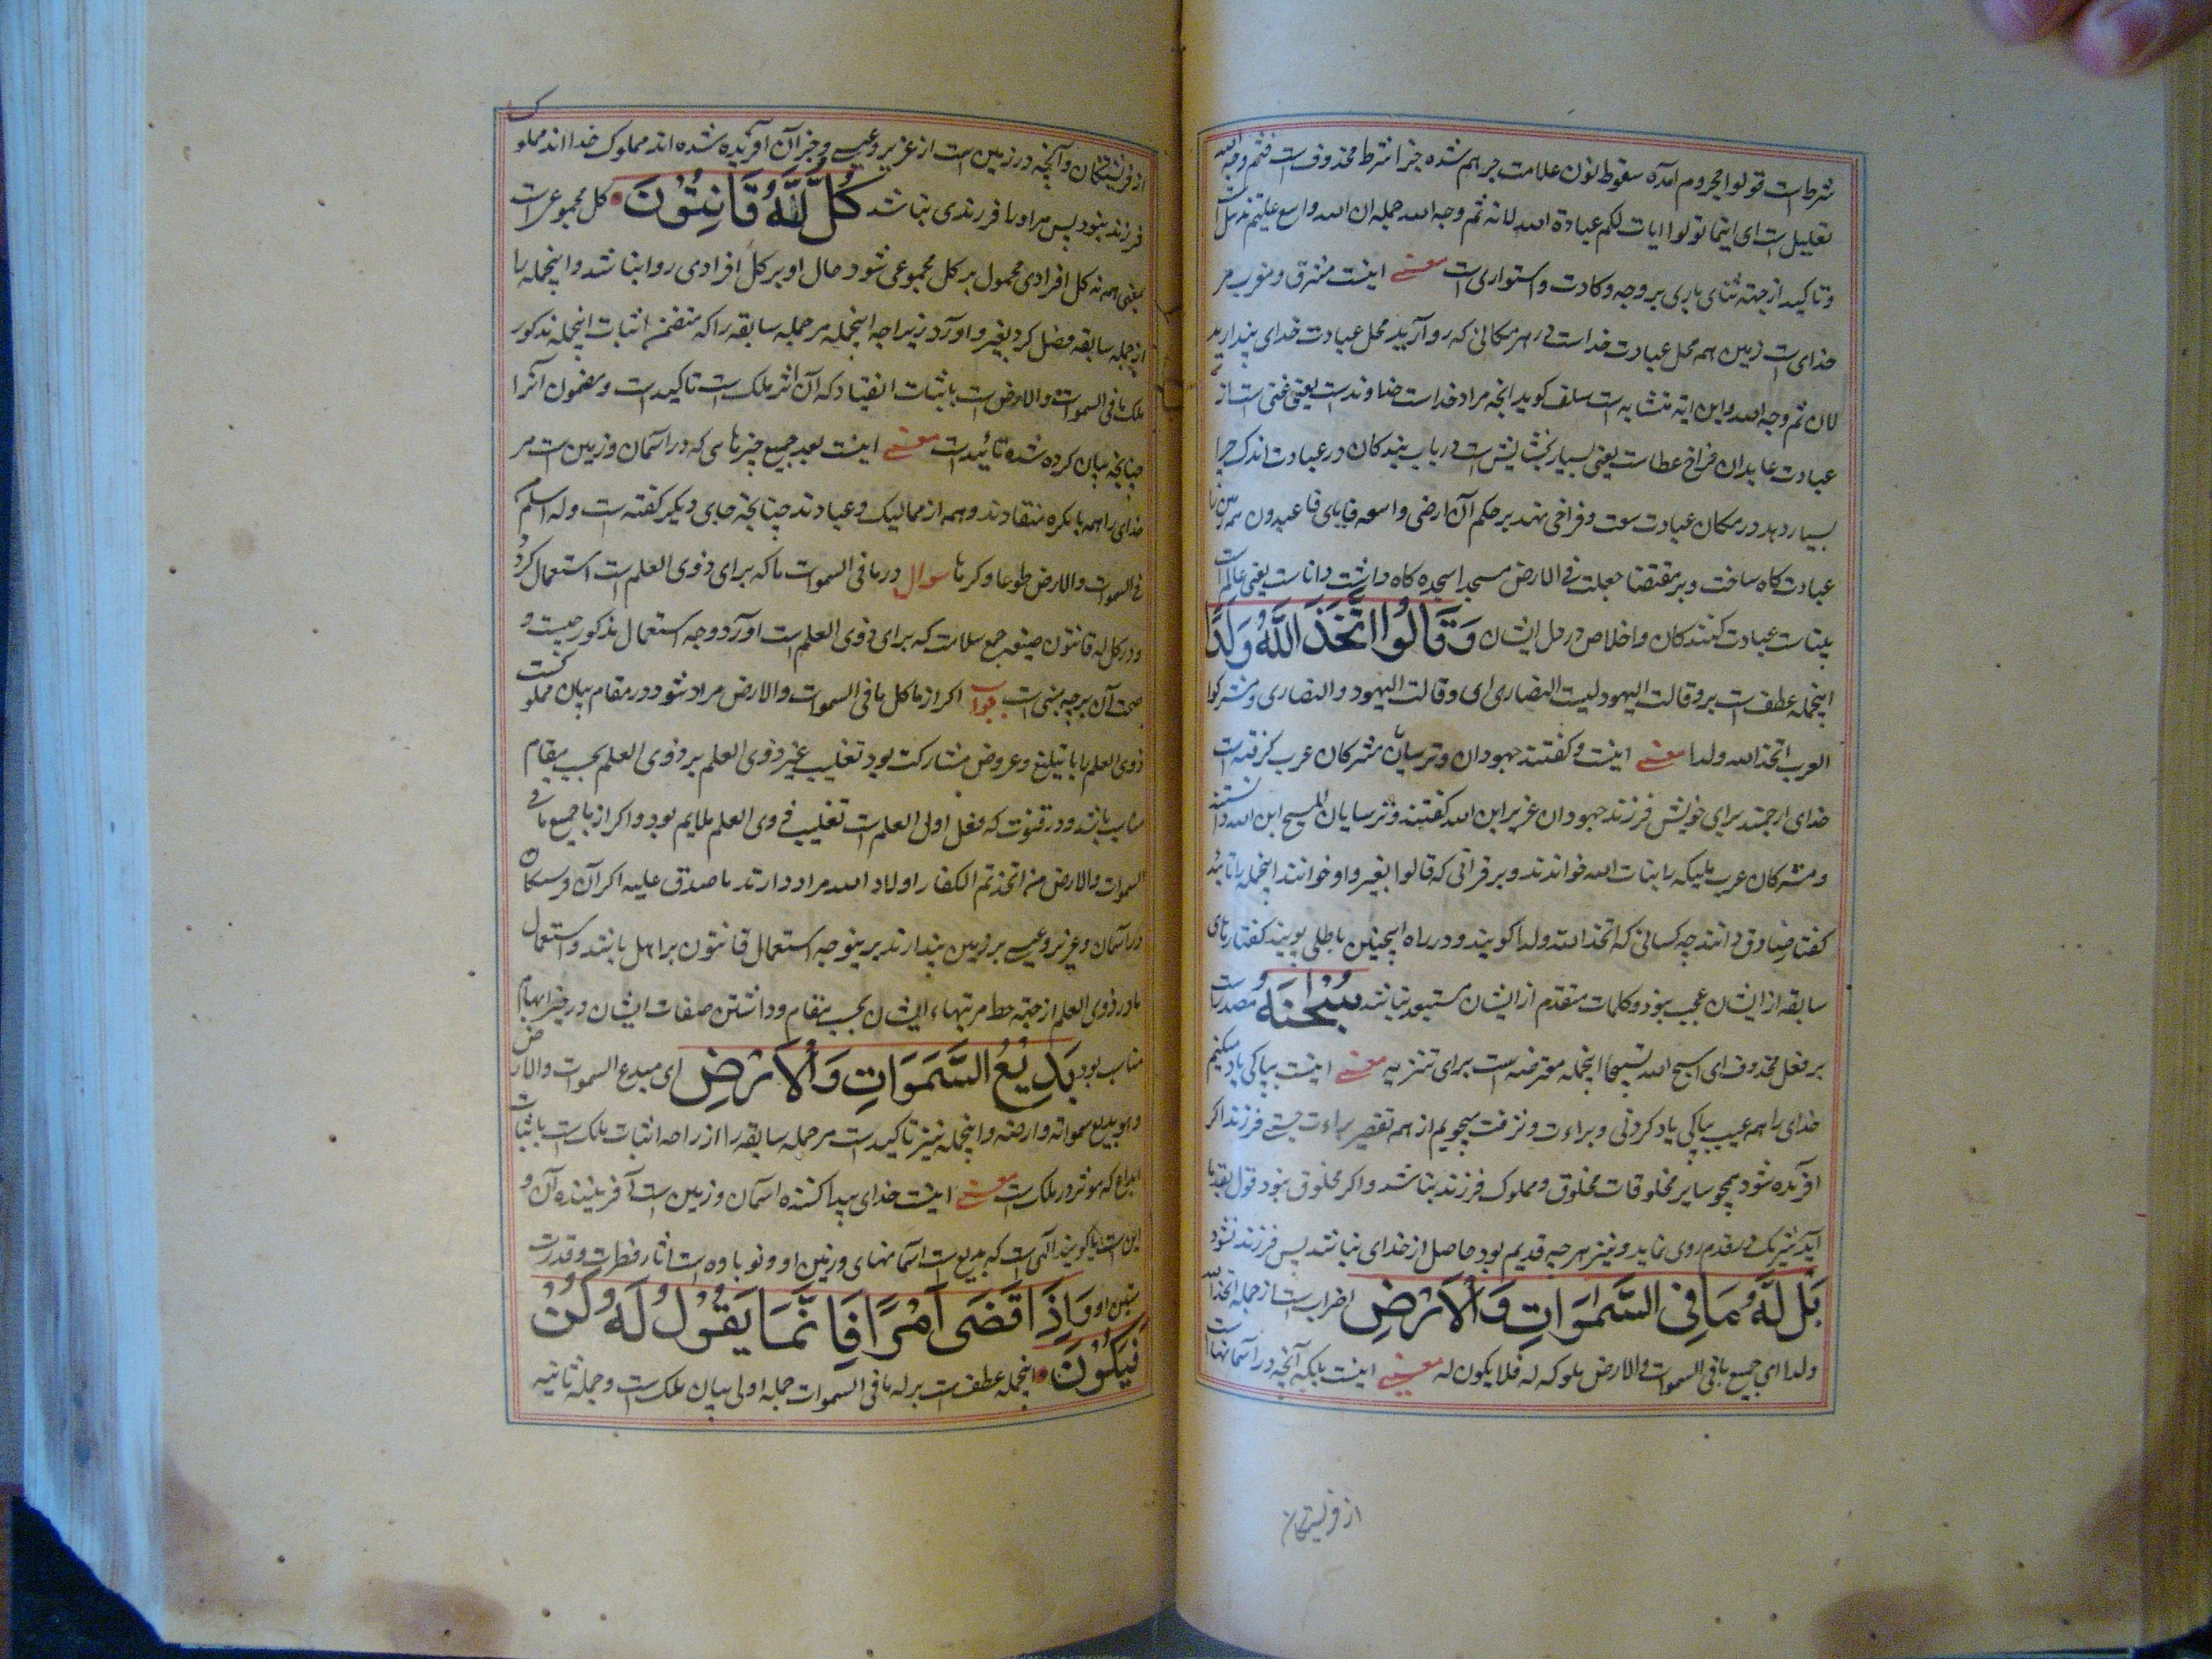 شرط است قولوا مجزوم آمده سقوط نون علامت جزم شده جزا شرط محذوف است فثم وجه الله
تعلیل است ای اینما تولوا لکم عبادة الله لانه ثم وجه الله جمله ان الله واسع علیم
و تاکید از جهته ثنای باری بر وجه وکادت و استواری است معنی اینست مشرق و مغرب مر
خدای است زمین همه محل عبادت خداست در هر مکانی که رو آرید محل عبادت خدای پندارید
لان ثم وجه الله و این ایة متشابه است سلف گوید انچه مراد خداست یعنی غنی است از
عبادت عابدان فراخ عطاست یعنی بسیار بخشایش است در باب بندکان در عبادت اندک جزا
بسیار دهد در مکان عبادت سعت و فراخی نهد بر حکم آن ارضی واسعه فایای فاعبدون همه زمین را
عبادت کاه ساخت و بر مقتضا جعلت فی الارض مسجدا سجده کاه داشت داناست یعنی عالم است
بنیات عبادت کنندکان و اخلاص در دل ایشان وَقَالُوا اتَّخَذَ اللَّهُ وَلَدًا
اینجمله عطف است بر و قالت الیهود لیست النصاری ای و قالت الیهود و النصاری و مشرکوا
العرب اتخذ الله ولدا معنی اینست و کفتند جهودان و ترسایان مشرکان عرب کرفته است
خدای ارجمند برای خویش فرزند جهودان عزیر ابن الله کفتند و ترسایان المسیح ابن الله دانستند
و مشرکان عرب ملیکه را بنات الله خواندند و بر قراتی که قالوا بغیر واو خوانند اینجمله را
کفتار صادق دانند چه کسانی که اتخذ الله ولدا کویند و در راه اینچنین باطلی پویند کفتارهای
سابقه از ایشان عجیب نبود و کلمات متقدم از ایشان مستبعد نباشد سُبْحٰنَهُ مصدر است
بر فعل محذوف ای اسبح الله تسبیحا اینجمله معترضه است برای تنزیه معنی اینست بپاکی یاد میکنیم
خدای را از همه عیب بپاکی یاد کردنی و براءت و نزهت میجویم از همه تقصیر فرزند اکر
آفریده شود همچو سایر مخلوقات مخلوق و مملوک فرزند نباشد و اکر مخلوق نبود قول بقدما
آید شریک در قدم روی نماید و نیز هر چه قدیم بود حاصل از خدای نباشد پس فرزند نشود
بَلْ لَهُ مَا فِی السَّمٰوَاتِ وَالْاَرْضِ اضراب است از جمله اتخذ الله
ولدا ای جمیع ما فی السموات و الارض مملوکه له فلا یکون له معنی اینست بلکه آنچه در آسمانها است
از فریشتکان
از فریشتکان و آنچه در زمین است از عزیر و عیسی و جز آن آفریده شده اند مملوک خدا اند مملوک
فرزند نبود پس مر او را فرزندی نباشد کُلٌّ لَّهُ قَانِتُوْنَ کل مجموعی است
بمعنی همه نه کل افرادی محمول بر کل مجموعی شود حال او بر کل افرادی روا نباشد و اینجمله را
از جمله سابقه فصل کرد بغیر واو آورد زیرا چه اینجمله مر جمله سابقه را که متضمن اثبات اینجمله مذکور
ملک ما فی السموات و الارض است باثبات انقیاد که آن اثر ملک است تاکید است و مضمون آنرا
چنانچه بیان کرده شده تائید است معنی اینست بعد جمیع چیزهای که در آسمان و زمین است مر
خدای را همه یا بکره منقادند و همه از ممالیک و عبادند چنانچه جای دیکر کفته است و له اسلم
فی السموات و الارض طوعا و کرها سوال در ما فی السموات ما که برای ذوی العلم است استعمال کرد
و در کل له قانتون صیغه جمع سلامت که برای ذوی العلم است آورد وجه استعمال مذکور چیست و
صحت آن بر چه مبنی است جواب اکر از ما کل ما فی السموات و الارض مراد شود در مقام بیان مملوکیت
ذوی العلم بابا و عروض مشارکت بود تغلیب غیر ذوی العلم بر ذوی العلم بحسب مقام
مناسب باشد و در قنوت که فعل اولی العلم است تغلیب ذوی العلم ملایم بود و اکر از ما جمیع ما فی
السموات و الارض من اتخذتم الکفار اولاد الله مراد دارند ما صدق علیه اکر آن فرشتکان
در آسمان و عزیر و عیسی بر زمین پندارند برینوجه استعمال قانتون بر اهل باشد و استعمال
ما در ذوی العلم از جهته حط مرتبهاء ایشان بحسب مقام و داشتن صفات ایشان در حیز ابهام
مناسب بود بَدِیْعُ السَّمٰوَاتِ وَالْاَرْضِ ای مبدع السموات و الارض
و هو بدیع سمواته و ارضه و اینجمله نیز تاکید است مر جمله سابقه را از راه اثبات ملک است باثبات
ابداع که موثر در ملک است معنی اینست خدای پیدا کننده اسمان و زمین است آفریننده آن و
این است الهی است که بدیع است آسمانهای و زمین او و نوباوه است اثار فطرت و قدرت
متین او وَاِذَا قَضَی اَمْرًا فَاِنَّمَا یَقُوْلُ لَهُ کُنْ
فَیَکُوْنُ اینجمله عطف است بر له ما فی السموات جمله اولی بیان ملک است و جمله ثانیه